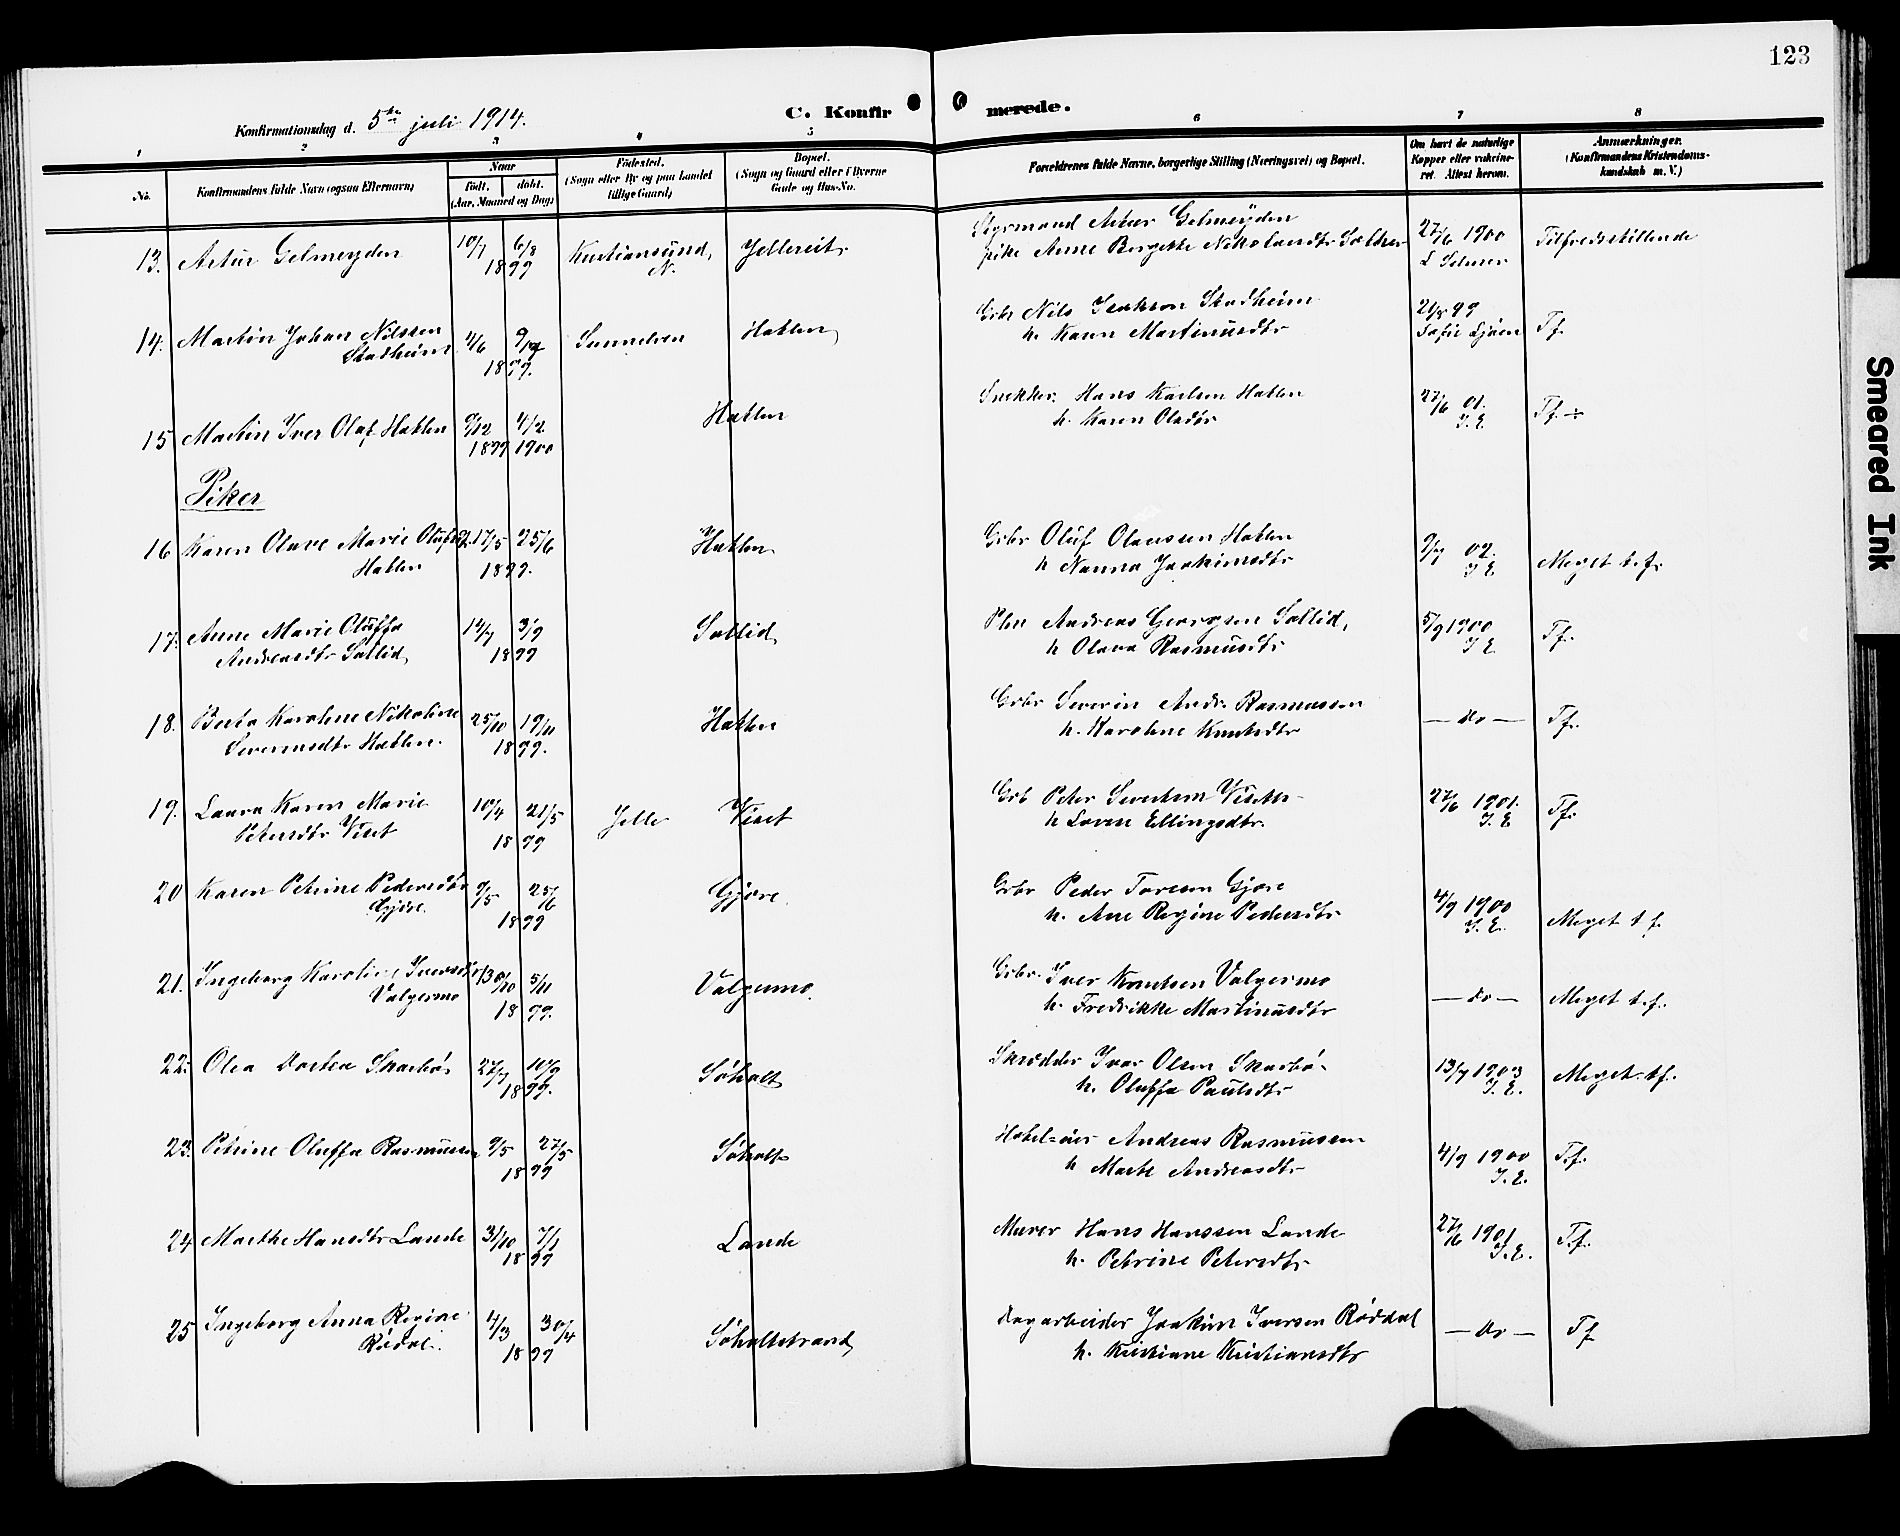 123
Konfirmationsdag d. 5te juli 1914.
C. Konfirmerede.
1 2 3 4 5 6 7 8
No.
Konfirmandens fulde Navn (ogsaa Efternavn)
Naar
født, døbt.
(Aar, Maaned og Dag)
Fødested.
(Sogn eller By og paa Landet
tillige Gaard)
Bopæl.
(Sogn og Gaard eller i Byerne
Gade og Hus-No.
Forældrenes fulde Navne, borgerlige Stilling (Næringsvei) og Bopæl.
Om havt de naturlige
Kopper eller vakcine-
ret. Attest herom.
Anmærkninger.
(Konfirmandens Kristendoms-
kundskab m. V.)
13. Artur Gelmeyden 10/7 6/8 1899 Kristiansund, N. Jellereit
Styrmand Artur Gelmeyden
pike Anne Bergette Nikolausdtr
27/6 1900
Tilfredsstillende
14. Martin Johan Nilssen
Stadheim 4/6 9/ 1899. Sunnelven Hatlen
Grbr Nils Isakson Stadheim
h. Karen Martinusdtr
99
Sofie Ljøen
Tf.
15 Martin Iver Olaf Hatlen 9/12 1899 4/2 1900 Hatlen
Snekker. Hans Karlsen Hatlen
h. Karen Oladtr
27/6 01.
I. E.
Tf.
Piker
16 Karen Olave Marie
Hatlen 17/5 25/6 1899. Hatlen
Grbr Oluf Olaussen Hatlen
h Nanna Joakimsdtr
9/7 02.
I E
Meget t. f.
17. Anne Marie Oluffa
Andreasdtr Sætlid 14/7 3/9 1899 Sætlid
Andreas Georgsen Sætlid,
h Olava Rasmusdtr
5/9 1900
I E
Tf.
18. Berta Karoline Nikoline
Severinsdtr Hatlen. 25/10 19/11 1899. Hatlen
Grbr Severin Andr. Rasmussen
h. Karoline Knutsdtr
— do —
Tf.
19. Laura Karen Marie
Petersdtr Viset 10/4 21/5 1899 Jelle Viset
Grb Peter Sivertsen
h Lovise Ellingsdtr.
27/6 1901.
I. E
Tf.
20 Karen Petrine Pedersdtr
Gjøre. 9/5 25/6 1899 Gjøre.
Grbr Peder Toresen Gjøre
h. Ane Regine Pedersdtr
4/9 1900
I. E.
Meget t f.
21. Ingeborg Karoline Iversdtr
Valgermo 30/10 5/11 1899. Valgermo.
Grbr. Iver Knutsen Valgermo
h. Fredrikke Martinusdtr
— do —
Meget t. f.
22. Olea Dortea Skarbø 27/7 10/9 1899. Søholt
Skrædder Ivar Olsen Skarbø
h. Oluffa Paulsdtr
13/7 1903
I. E.
Meget. t f.
23. Petrine Oluffa Rasmussen 9/5 27/5 1899 Søholt
Hotel-eier Andreas Rasmussen
h Marte Andreasdtr
4/9 1900
I. E.
T.f.
24 Marthe Hansdtr Lande 31/10 7/1 1899 Lande
Murer Hans Hanssen Lande
h. Petrine Petersdtr
27/6 1901
I. E.
T.f.
25 Ingeborg Anna Regine
Rødal. 4/3 30/4 1899 Søholtstrand
Dagarbeider Joakim Iversen Røddal
h. Kristiane Kristiansdtr
— do —
Tf
Smeared Ink